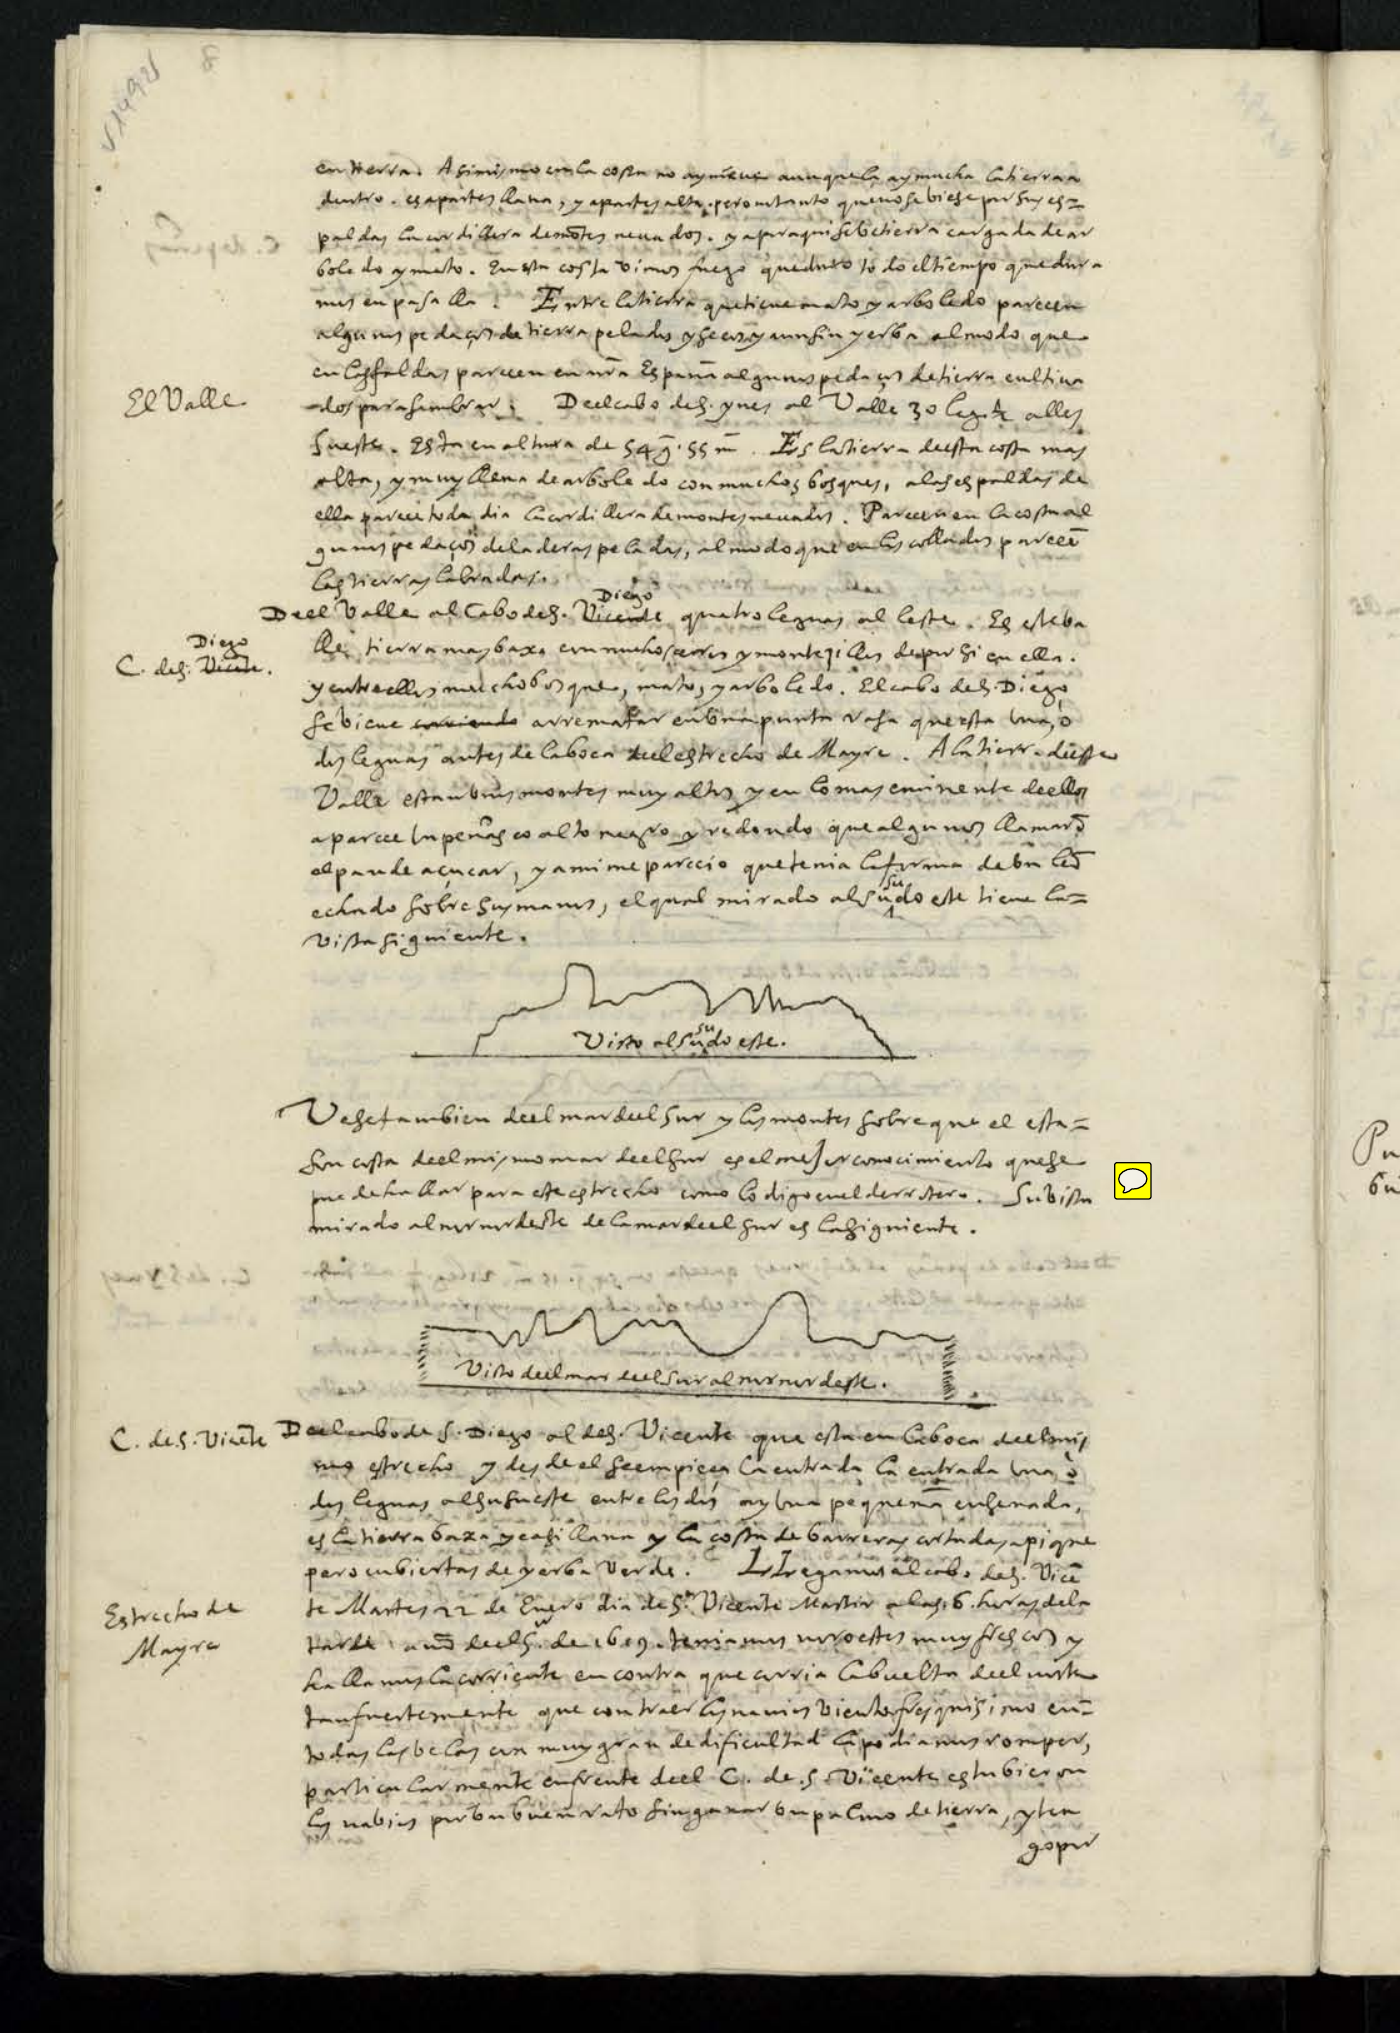 V14921
8
en tierra. Asimismo en la costa no ay nieve aunque la ay mucha la tierra a
dentro. es a partes llana, y a partes alta. pero no tanto que no se biese por sus es=
paldas la cordillera de mōtes nevados. y a para qui se be tierra cargada de ar
boledo y mato. En esta costa vimos fuego que duro todo el tiempo que dura
mos en pasalla. Entre la tierra que tiene mato y arboledo parecen
algunos pedaços de tierra pelados y secos y aun sin yerba al modo que
en las faldas parecen en nrã España algunos pedaços de tierra cultiva
El Valle
dos para sembrar. De el cabo de S. ynes al Valle 30 leg.s alles
sueste. Esta en altura de 54 g. 55 m. Es la tierra de esta costa mas
alta, y muy llena de arboledo con muchos bosques, a las espaldas de
ella parece toda dia la cordillera de montes nevados. Parecen en la costa al
gunos pedaços de laderas peladas, al modo que en los collados parecē
las tierras labradas.
Diego
De el Valle al Cabo de S. Vicente quatro leguas al leste. Es este ba
Diego
C. de S. Vicēte.
lle tierra mas baxa con muchos cerros y montezillos de por si en ella.
y entre ellos mucho bosque, mato, y arboledo. El cabo de S. Diego
se biene corriendo a rematar en una punta rasa que esta una, o
dos leguas antes de la boca de el estrecho de Mayre. A la tierra de este
Valle estan unos montes muy altos y en lo mas eminente de ellos
aparece un peñasco alto negro y redondo que algunos llamarō
el pan de açucar, y a mi me parecio que tenia la forma de un leō
su
echado sobre sus manos, el qual mirado al sudoeste tiene la=
vista siguiente.
su
Visto al sudoeste.
Vese tambien de el mar de el Sur y los montes sobre que el esta=
son costa de el mismo mar de el sur es el mejor conocimiento que se
puede hallar para este estrecho como lo digo en el derrotero. Su vista
mirado al nornordeste de la mar de el sur es la siguiente.
Visto de el mar de el Sur al nornordeste.
C. de S. Vicēte
De el cabo de S. Diego al de S. Vicente que esta en la boca de el mis
mo estrecho y desde el se empieça la entrada la entrada una, o
dos leguas al susueste entre los dos ay una pequeña ensenada,
es la tierra baxa y casi llana y la costa de barreras cortadas a pique
pero cubiertas de yerba verde. LLegamos al cabo de S. Vicē
Estrecho de
Mayre
te Martes 22 de Enero dia de S.n Vicente Martir a las 6 horas de la
tarde año de el S.r de 1619. teniamos noroestes muy frescos y
hallamos la corriente en contra que corria la buelta de el norte
tan fuertemente que con traer los navios viento fresquisimo en=
todas las belas con muy grande dificultad la podiamos romper,
particularmente enfrente de el C. de S. Vicente estubieron
los nabios por un buen rato sin ganar un palmo de tierra, y ten
go por